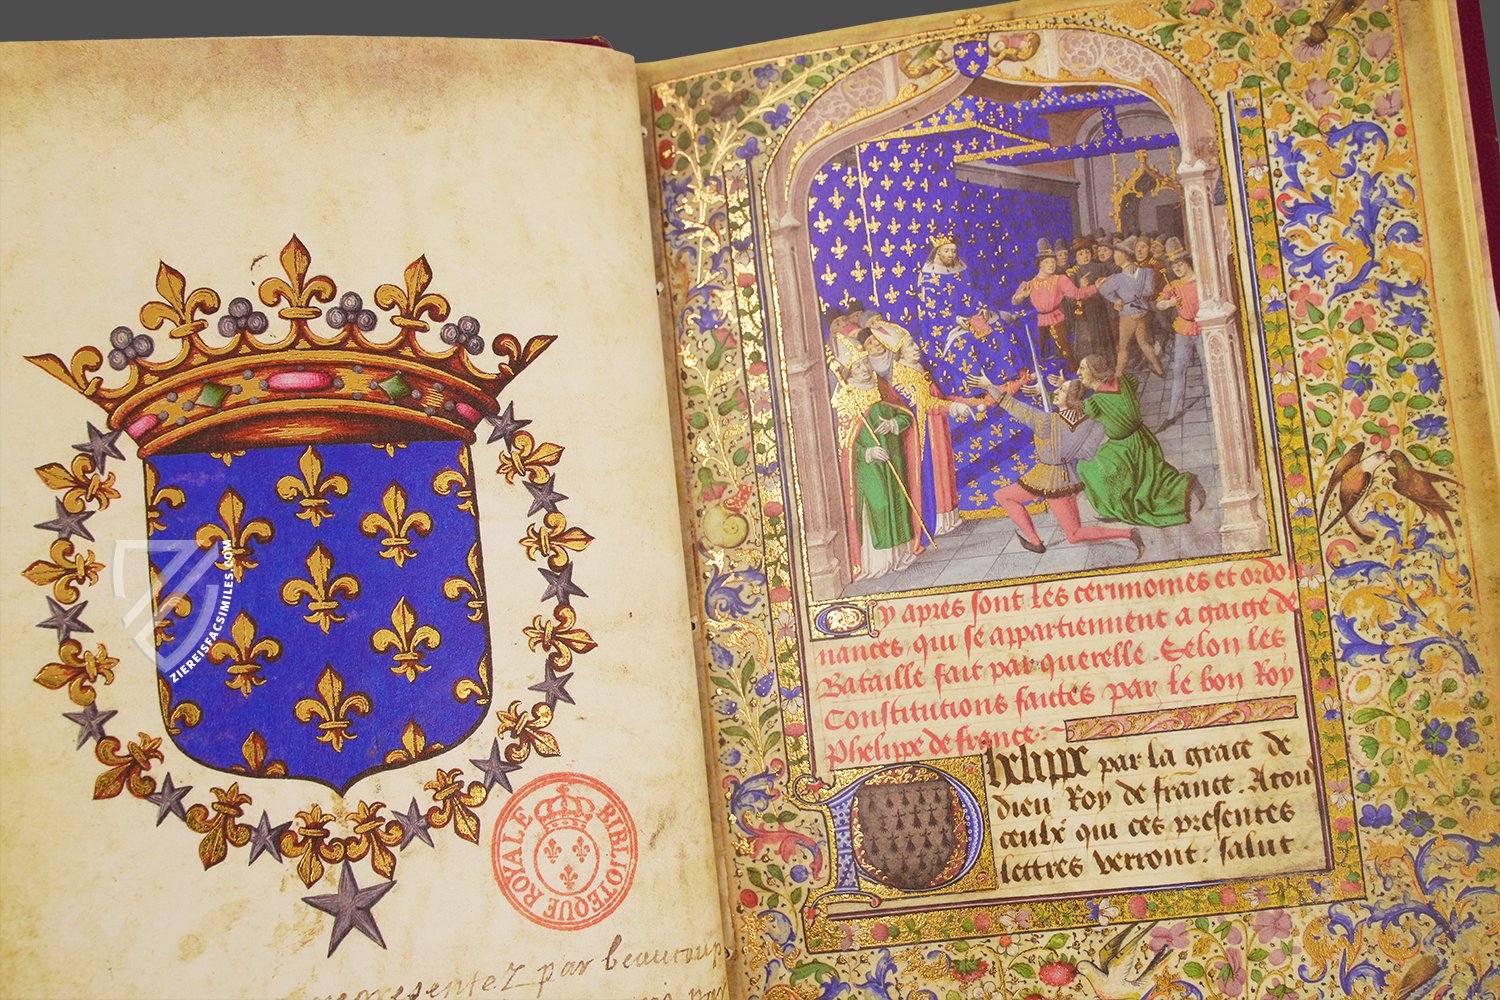 ZIEREISFACSIMILES.COM
BIBLIOTEQUE ROYALE
presentez par beaucoup
Cy apres sont les cerimonies et ordo
nances qui se appartiennent a gaige de
Bataille fait par querelle. Selon les
Constitutions faites par le bon Roy
Phelipe de france.
Phelippe par la grace de
dieu Roy de france. A tou
ceulx qui ces presentes
lettres verront. salut